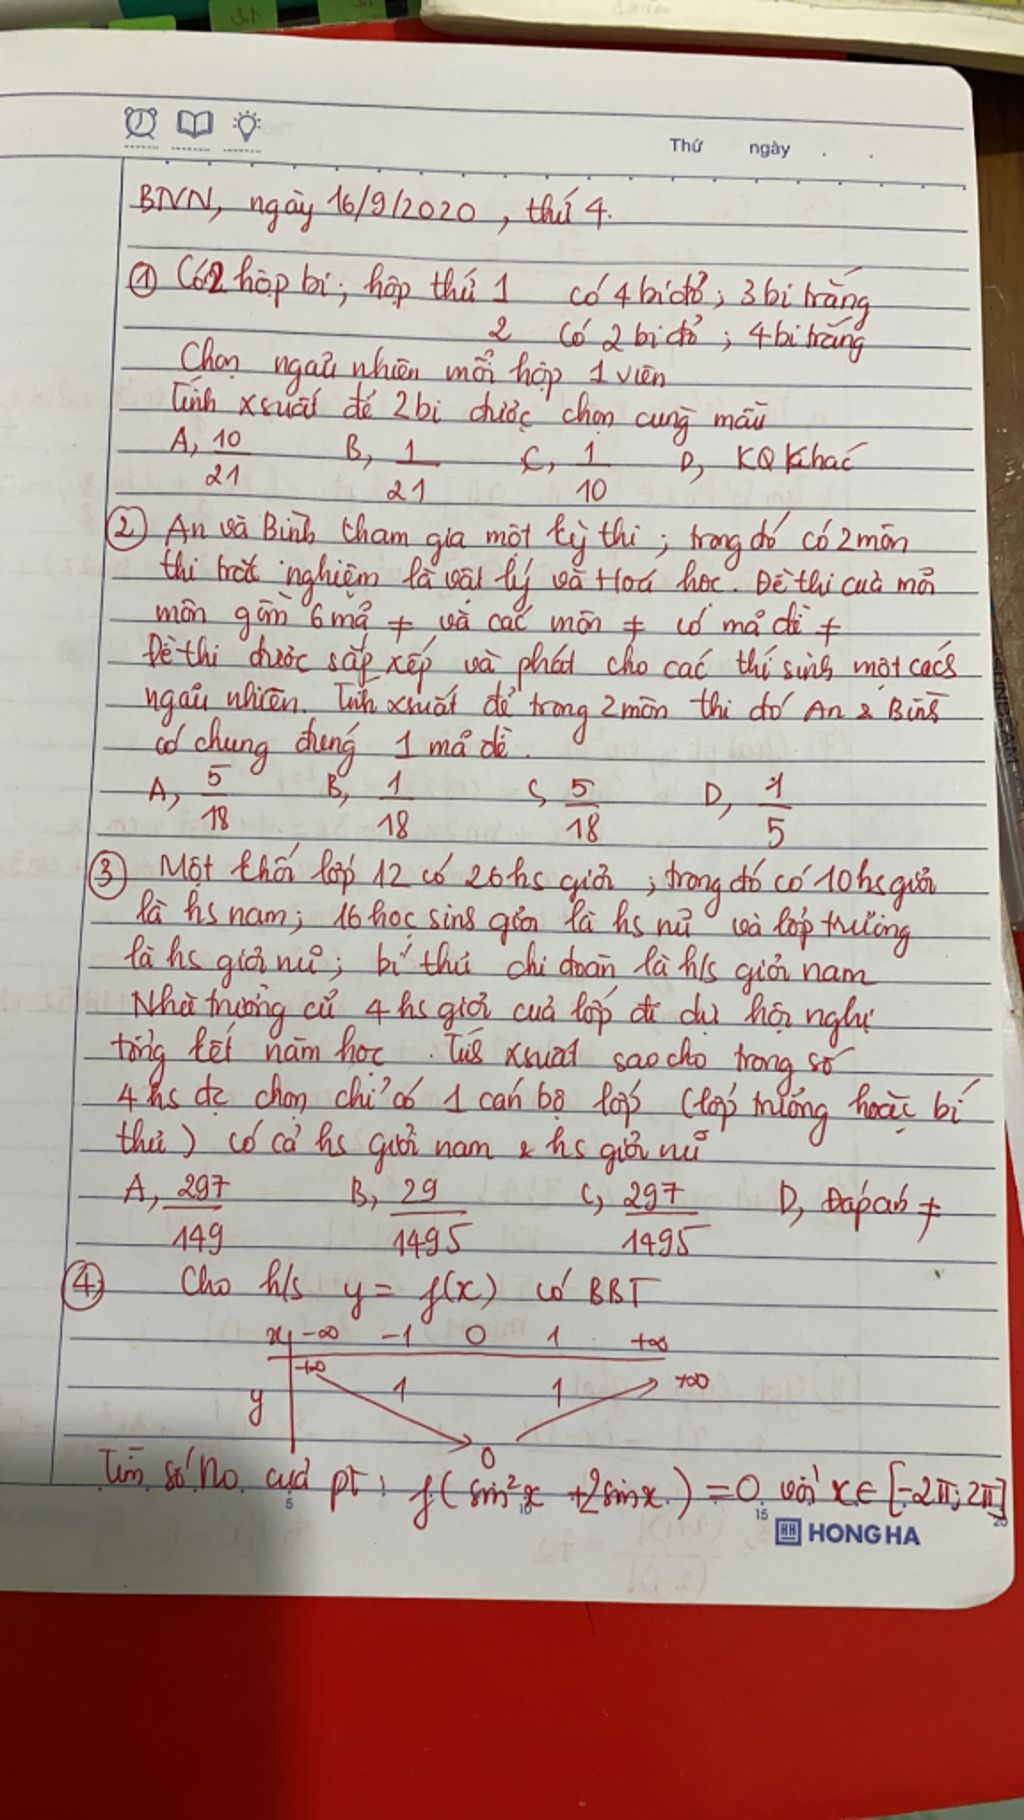 Thứ ngày . .
BTVN, ngày 16/9/2020, thứ 4.
① Có 2 hộp bi; hộp thứ 1 có 4 bi đỏ; 3 bi trắng
2 có 2 bi đỏ; 4 bi trắng
Chọn ngẫu nhiên mỗi hộp 1 viên
Tính xsuất để 2 bi được chọn cùng màu
A, 10/21 B, 1/21 C, 1/10 D, KQ khác
② An và Bình tham gia một kỳ thi; trong đó có 2 môn
thi trắc nghiệm là vật lý và Hoá học. Đề thi của mỗi
môn gồm 6 mã ≠ và các môn ≠ có mã đề ≠
Đề thi được sắp xếp và phát cho các thí sinh một cách
ngẫu nhiên. Tính xsuất để trong 2 môn thi đó An & Bình
có chung đúng 1 mã đề.
A, 5/18 B, 1/18 C, 5/18 D, 1/5
③ Một khối lớp 12 có 26 hs giỏi; trong đó có 10 hs giỏi
là hs nam; 16 học sinh giỏi là hs nữ và lớp trưởng
là hs giỏi nữ; bí thư chi đoàn là h/s giỏi nam
Nhà trường cử 4 hs giỏi của lớp đi dự hội nghị
tổng kết năm học. Tính xsuất sao cho trong số
4 hs đc chọn chỉ có 1 cán bộ lớp (lớp trưởng hoặc bí
thư) có cả hs giỏi nam & hs giỏi nữ
A, 297/149 B, 29/1495 C, 297/1495 D, Đáp án ≠
④ Cho h/s y = f(x) có BBT
x -∞ -1 0 1 +∞
+∞ 1 1 +∞
y
0
Tìm số No của pt: f(sin²x + 2sinx) = 0 với x ∈ [-2π; 2π]
5 10 15 20
HH HONG HA